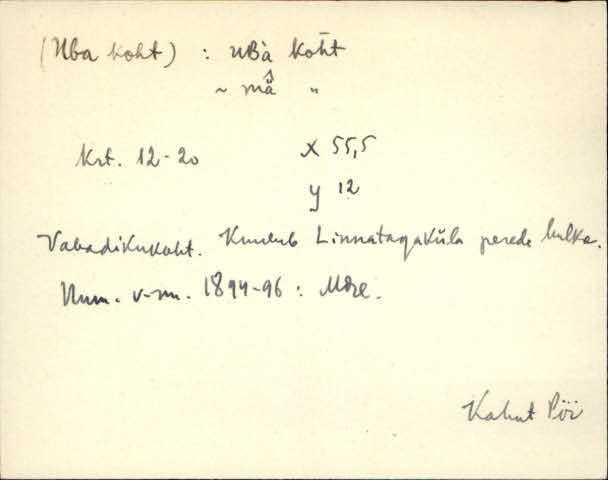 (Uba koht) : uʙà kōht
~ mà̂ "
Krt. 12-20 X 55,5
y 12
Vabadikukoht. Kuulub Linnatagaküla perede hulka.
Num. v-nu. 1894-96 : Mdre.
Kahut Pöi